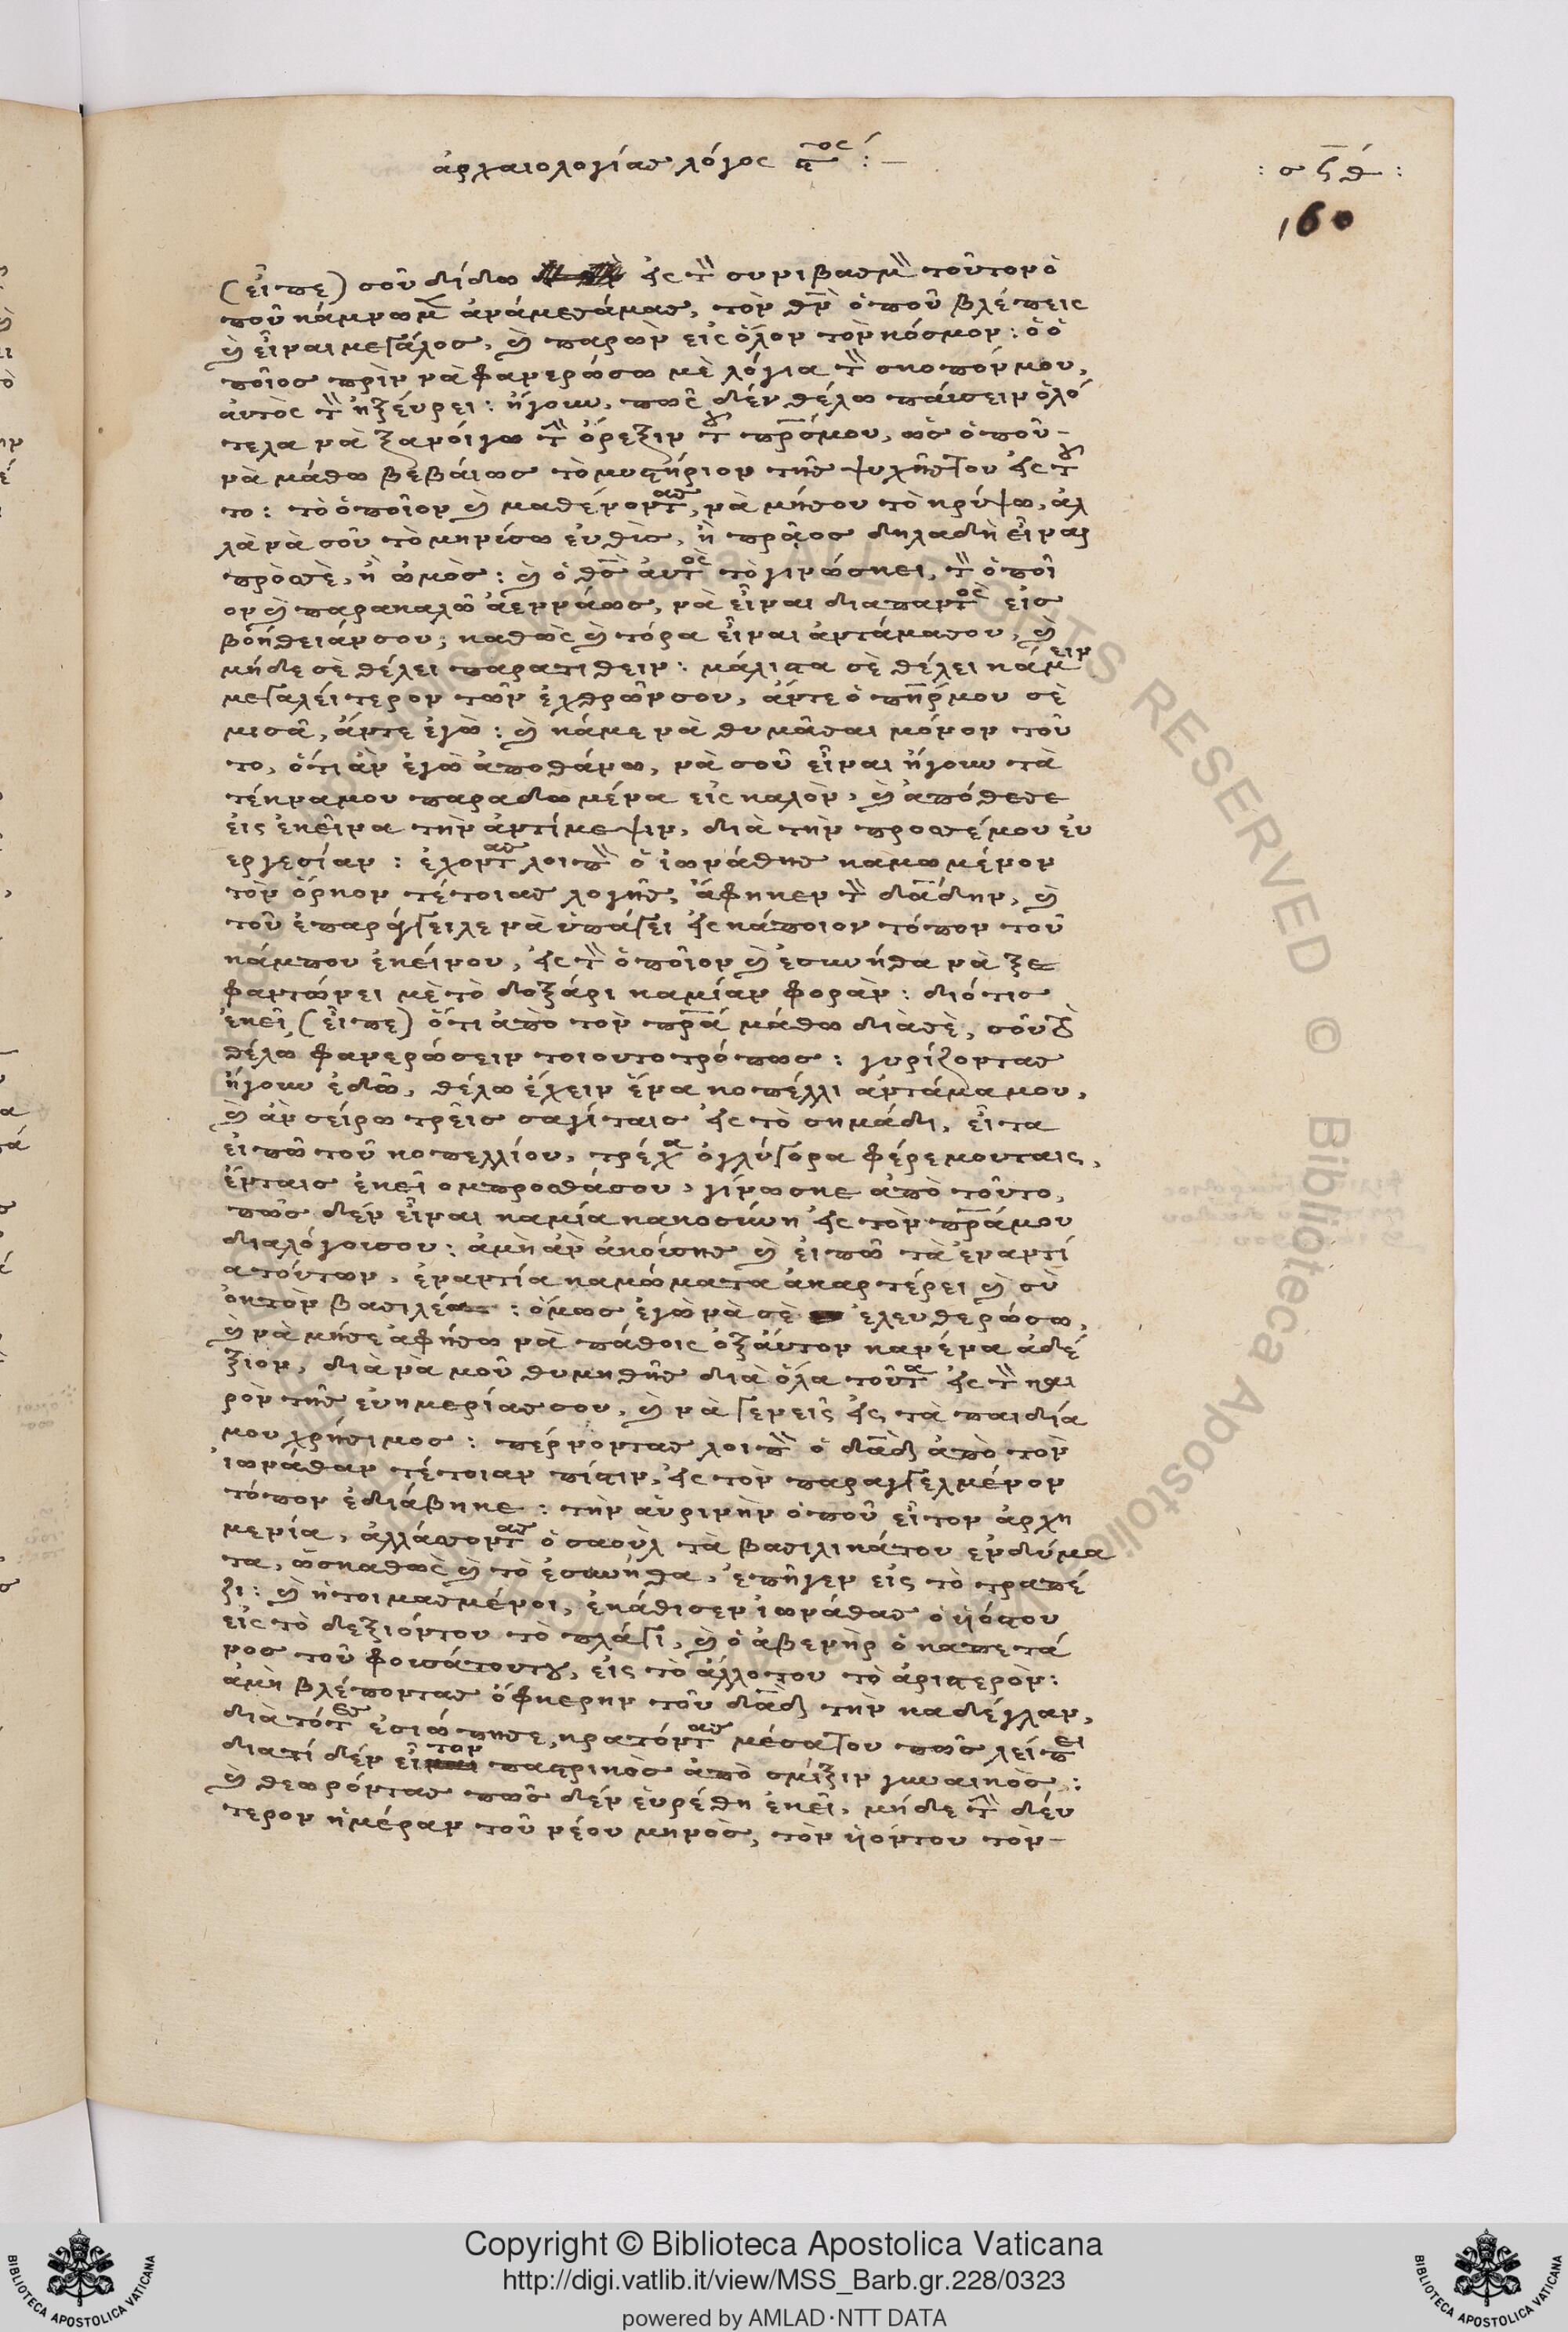 ἀρχαιολογίας λόγος ϛ^ος :—
: σϟθ :
160
(εἶπε) σοῦ δίδω εἰς τὸ συνιβασμὸ τοῦτον ὁ
ποῦ κάμνωμ ἀνάμεσάμας, τὸν θν ὁποῦ βλέπεις
καὶ εἶναι μεγάλος, καὶ παρὼν εἰς ὅλον τὸν κόσμον: ὁ ὁ
ποῖος πρὶν νὰ φανερώσω μὲ λόγια τὸ σκοπόν μου,
αὐτὸς τὸ ἠξεύρει: ἤγουν, πῶς δὲν θέλω παύσειν ὁλό
τελα νὰ ξανοίγω τὴ ὄρεξιν τοῦ πρσμου, ὡς ὁποῦ –
νὰ μάθω βεβαίως τὸ μυστήριον τῆς ψυχῆς του εἰς τοῦ
το: τὸ ὁποῖον καὶ μαθένοντας, νὰ μήσου τὸ κρύψω, ἀλ
λὰ νὰ σοῦ τὸ μηνύσω εὐθὺς, ἢ πρᾶος δηλαδὴ εἶναι
πρὸς σὲ, ἢ ὠμὸς: καὶ ὁ θς αὐτὸς τὸ γινώσκει, τὸ ὁποῖ
ον καὶ παρακαλῶ ἀεννάως, νὰ εἶναι διαπαντὸς εἰς
βοήθειάν σου; καθὼς καὶ τόρα εἶναι ἀντάμασου, καὶ
μήδε σὲ θέλει παρατιθειν: μάλιστα σὲ θέλει κάμειν
μεγαλείτερον τῶν ἐχθρῶν σου, ἄντε ὁ πηρμου σὲ
μισᾶ, ἄντε ἐγὼ: καὶ κάμε νὰ θυμᾶσαι μόνον τοῦ
το, ὅτι ἂν ἐγὼ ἀποθάνω, νὰ σοῦ εἶναι ἤγουν τὰ
τέκναμου παραδωμένα εἰς καλὸν, καὶ ἀπόθεσε
εἰς ἐκεῖνα τὴν ἀντίμεψιν, διὰ τὴν προσέμου εὐ
εργεσίαν: ἔχοντας λοιπὸ ὁ ἰωνάθης καμωμένον
τὸν ὅρκον τέτοιας λογῆς, ἄφηκεν τὸ δᾶδην, καὶ
τοῦ ἐπαράγγειλε νὰ ὑπάγει εἰς κάποιον τόπον τοῦ
κάμπου ἐκείνου, εἰς τὸ ὁποῖον καὶ ἐσυνήθα νὰ ξε
φαντώνει μὲ τὸ δοξάρι καμίαν φορὰν: διότις
ἐκεῖ (εἶπε) ὅτι ἀπὸ τὸν πρᾶ μάθω διὰ σὲ, σοῦ τὸ
θέλω φανερώσειν τοιουτοτρόπως: γυρίζοντας
ἤγουν ἐδῶ, θέλω ἔχειν ἕνα κοπέλλι ἀντάμα μου,
καὶ ἂν σείρω τρεῖς σαγίταις εἰς τὸ σημάδι, εἶτα
εἰπῶ τοῦ κοπελλίου, τρέχα ὀγλύγορα φέρε μουταις,
ἔνταις ἐκεῖ ομπροσθάσου, γίνωσκε ἀπὸ τοῦτο,
πῶς δὲν εἶναι καμία κακοσύνη εἰς τὸν πράμου
διαλόγουσου: ἀμὴ ἂν ἀκούσης καὶ εἰπῶ τὰ ἐναντί
ατόυτων, ἐναντία καμώματα ἀκαρτέρει καὶ σὺ
ὀκτὸν βασιλέα: ὅμως ἐγὼ νὰ σὲ ἐλευθερώσω,
καὶ νὰ μήσε ἀφήσω νὰ πάθοις ὀξάυτον κανένα ἀδέ
ξιον, διὰ νὰ μοῦ θυμηθῆς διὰ ὅλα τοῦτα εἰς τὸ και
ρὸν τῆς εὐημερίας σου, καὶ νὰ γενεῖς εἰς τὰ παιδία
μου χρήσιμος: πέρνοντας λοιπὸ ὁ δᾶδ ἀπὸ τὸν
ἰωναθαν τέτοιαν πίστιν, εἰς τὸν παραγγελμένον
τόπον ἐδιάβηκε: τὴν αὐρινὴν ὁποῦ εἶτον ἀρχη
μενία, ἀλλάσοντας ὁ σαοὺλ τὰ βασιλικάτου ἐνδύμα
τα, ὡσκαθὼς καὶ τὸ ἐσυνήθα, ἐπῆγεν εἰς τὸ τραπέ
ζι: καὶ ἡτοιμασμένοι, ἐκάθισεν ἰωνάθας ὁ ὑιόστου
εἰς τὸ δεξιόντου τὸ πλάγι, καὶ ὁ ἀβενὴρ ὁ καπετά
νος τοῦ φουσάτουτου, εἰς τὸ ἄλλοτου τὸ ἀριστερὸν:
ἀμὴ βλέποντας ὄφκερην τοῦ δᾶδ τὴν καδέγλαν,
διὰ τότες ἐσιώπησε, κρατόντας μέσα του πῶς λείπει
διατὶ δὲν εἶτον παστρικὸς ἀπὸ σμίξιν γυναικὸς:
καὶ θεωρόντας πῶς δὲν εὑρέθη ἐκεῖ, μήδε τὴ δέυ
τερον ἡμέραν τοῦ νέου μηνὸς, τὸν ὑιόντου τὸν –
Copyright © Biblioteca Apostolica Vaticana
http://digi.vatlib.it/view/MSS_Barb.gr.228/0323
powered by AMLAD·NTT DATA
BIBLIOTECA APOSTOLICA VATICANA
BIBLIOTECA APOSTOLICA VATICANA